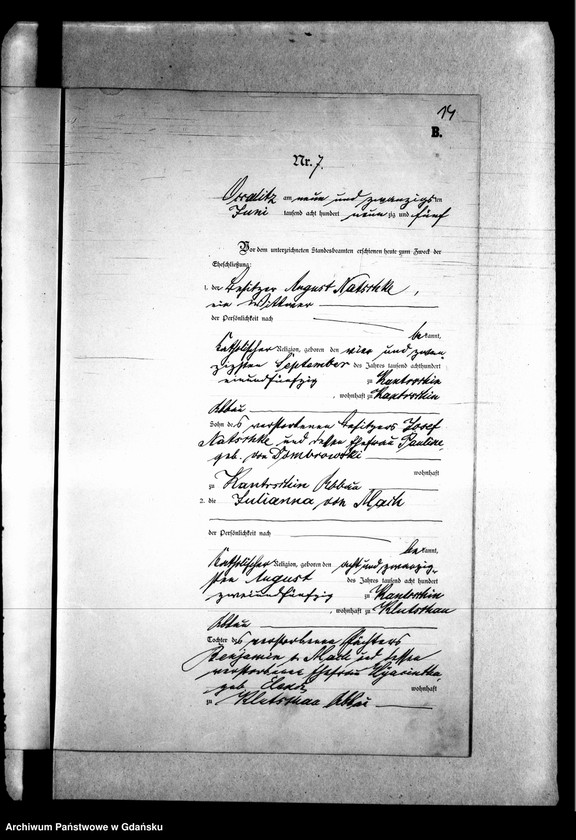 14
B.
Nr. 7.
am neun und zwanzigsten
Juni tausend acht hundert neunzig und fünf
Vor dem unterzeichneten Standesbeamten erschienen heute zum Zweck der
Eheschließung:
1. der Besitzer August Natschke,
ein Wittwer
der Persönlichkeit nach
bekannt,
katholischer Religion, geboren den vier und zwan-
zigsten September des Jahres tausend achthundert
einundfünfzig zu Kantrschin
, wohnhaft zu Kantrschin
Abbau
Sohn des verstorbenen Besitzers Josef
Natschke und dessen Ehefrau Pauline
geb. von Dombrowski
wohnhaft
zu Kantrschin Abbau
2. die Julianna von Mach
der Persönlichkeit nach
bekannt,
katholischer Religion, geboren den acht und zwanzig-
sten August des Jahres tausend acht hundert
zweiundfünfzig zu Kantrschin
, wohnhaft zu Klutschau
Abbau
Tochter des verstorbenen Pächters
Benjamin v. Mach und dessen
verstorbene Ehefrau
geb.
wohnhaft
zu Klutschau Abbau
Archiwum Państwowe w Gdańsku